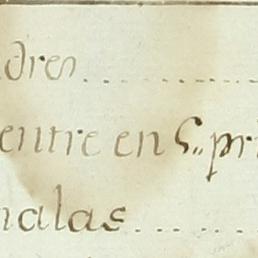 dres......
entre en S.. pr
nalas......